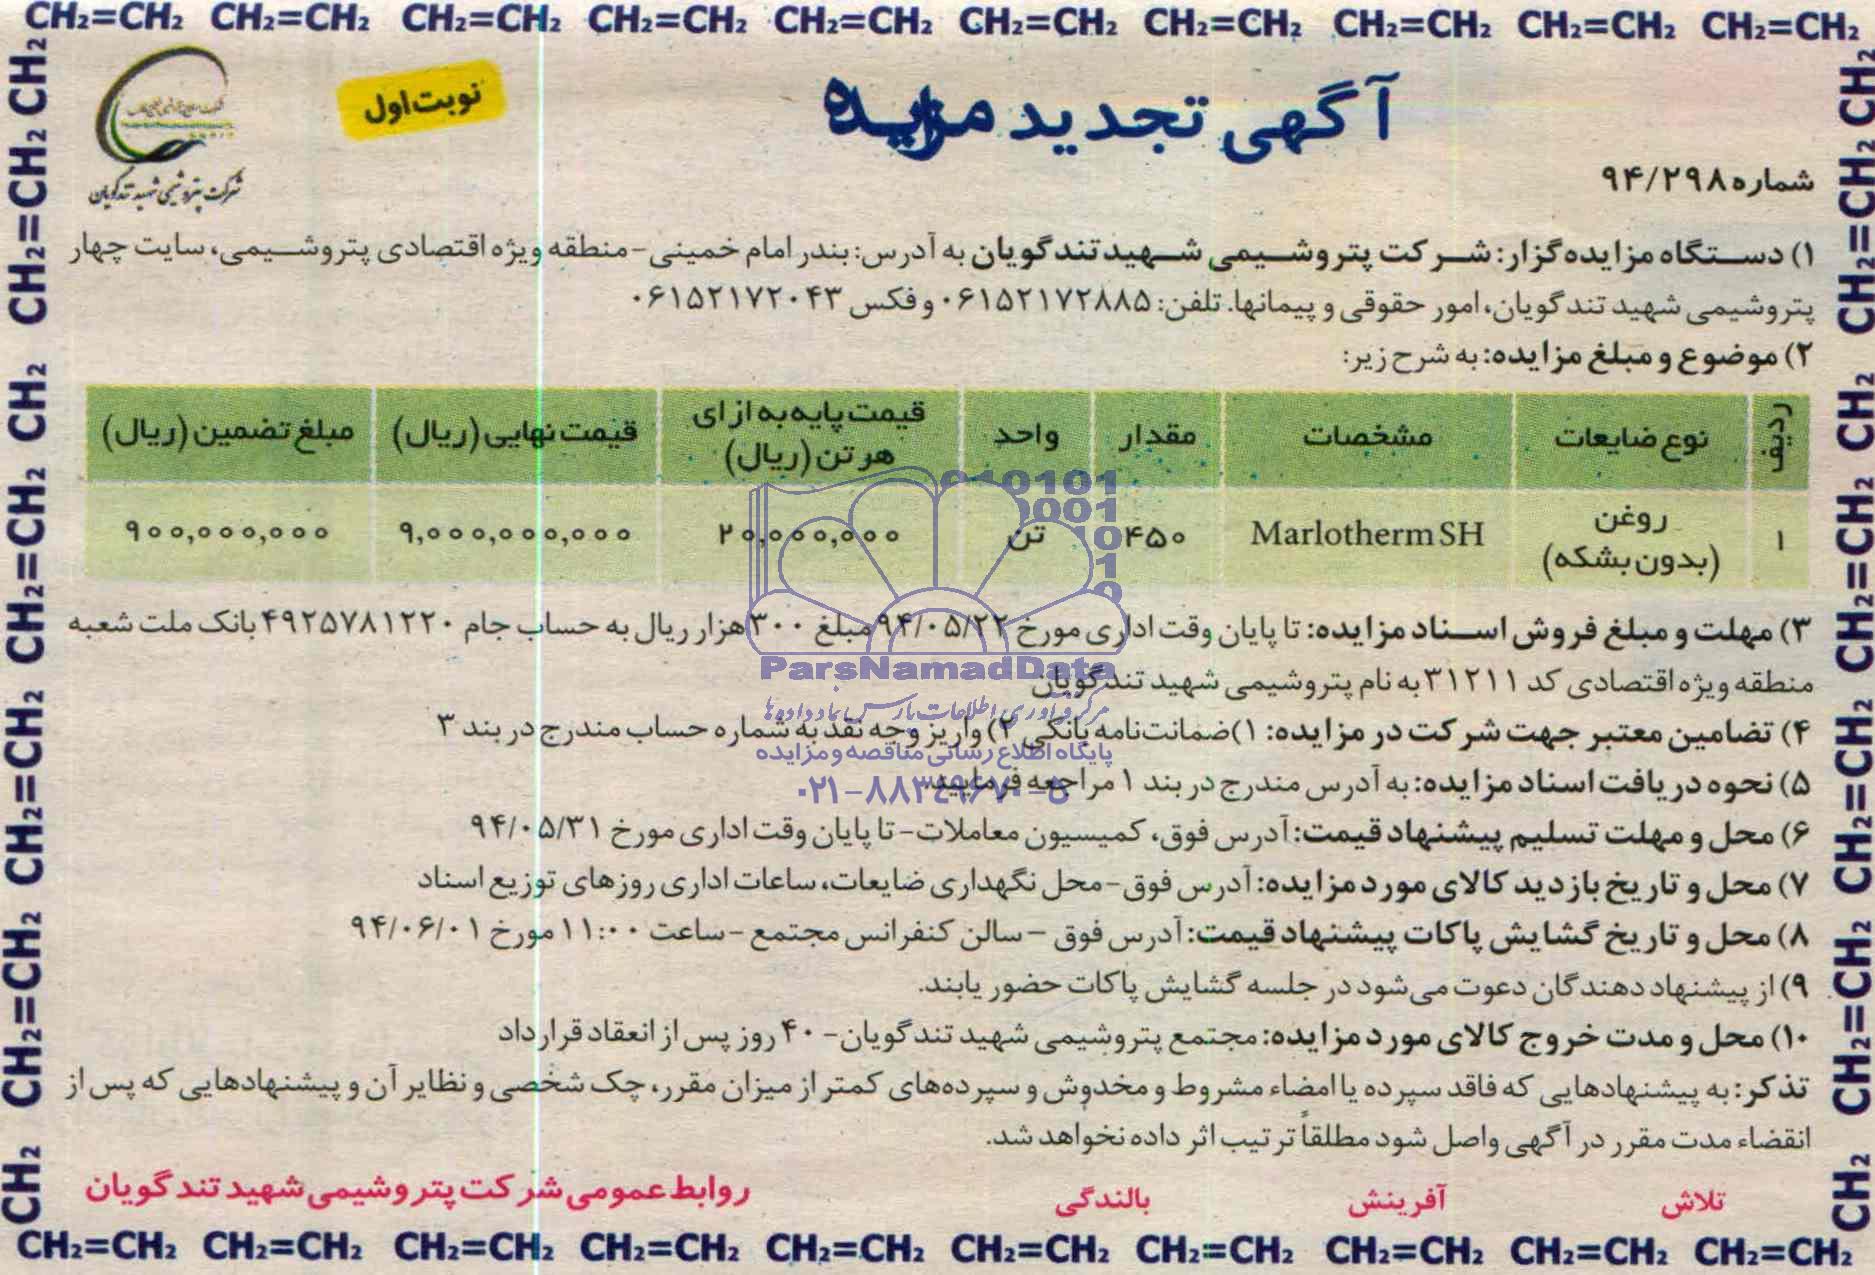 CH₂=CH₂ CH₂=CH₂ CH₂=CH₂ CH₂=CH₂ CH₂=CH₂ CH₂=CH₂ CH₂=CH₂ CH₂=CH₂ CH₂=CH₂ CH₂=CH₂
آگهی تجدید مزایده
نوبت اول
شرکت پتروشیمی شهید تندگویان
شماره ۹۴/۲۹۸
۱) دستگاه مزایده‌گزار: شرکت پتروشیمی شهید تندگویان به آدرس: بندر امام خمینی - منطقه ویژه اقتصادی پتروشیمی، سایت چهار
پتروشیمی شهید تندگویان، امور حقوقی و پیمانها. تلفن: ۰۶۱۵۲۱۷۲۸۸۵ و فکس ۰۶۱۵۲۱۷۲۰۴۳
۲) موضوع و مبلغ مزایده: به شرح زیر:
ردیف | نوع ضایعات | مشخصات | مقدار | واحد | قیمت پایه به ازای هر تن (ریال) | قیمت نهایی (ریال) | مبلغ تضمین (ریال)
۱ | روغن (بدون بشکه) | Marlotherm SH | ۴۵۰ | تن | ۲۰,۰۰۰,۰۰۰ | ۹,۰۰۰,۰۰۰,۰۰۰ | ۹۰۰,۰۰۰,۰۰۰
۳) مهلت و مبلغ فروش اسناد مزایده: تا پایان وقت اداری مورخ ۹۴/۰۵/۲۲ مبلغ ۳۰۰ هزار ریال به حساب جام ۴۹۲۵۷۸۱۲۲۰ بانک ملت شعبه
منطقه ویژه اقتصادی کد ۳۱۲۱۱ به نام پتروشیمی شهید تندگویان
۴) تضامین معتبر جهت شرکت در مزایده: ۱) ضمانت‌نامه بانکی ۲) واریز وجه نقد به شماره حساب مندرج در بند ۳
۵) نحوه دریافت اسناد مزایده: به آدرس مندرج در بند ۱ مراجعه فرمایید.
۶) محل و مهلت تسلیم پیشنهاد قیمت: آدرس فوق، کمیسیون معاملات - تا پایان وقت اداری مورخ ۹۴/۰۵/۳۱
۷) محل و تاریخ بازدید کالای مورد مزایده: آدرس فوق - محل نگهداری ضایعات، ساعات اداری روزهای توزیع اسناد
۸) محل و تاریخ گشایش پاکات پیشنهاد قیمت: آدرس فوق - سالن کنفرانس مجتمع - ساعت ۱۱:۰۰ مورخ ۹۴/۰۶/۰۱
۹) از پیشنهاد دهندگان دعوت می‌شود در جلسه گشایش پاکات حضور یابند.
۱۰) محل و مدت خروج کالای مورد مزایده: مجتمع پتروشیمی شهید تندگویان - ۴۰ روز پس از انعقاد قرارداد
تذکر: به پیشنهادهایی که فاقد سپرده یا امضاء مشروط و مخدوش و سپرده‌های کمتر از میزان مقرر، چک شخصی و نظایر آن و پیشنهادهایی که پس از
انقضاء مدت مقرر در آگهی واصل شود مطلقاً ترتیب اثر داده نخواهد شد.
تلاش آفرینش بالندگی روابط عمومی شرکت پتروشیمی شهید تندگویان
CH₂=CH₂ CH₂=CH₂ CH₂=CH₂ CH₂=CH₂ CH₂=CH₂ CH₂=CH₂ CH₂=CH₂ CH₂=CH₂ CH₂=CH₂ CH₂=CH₂
ParsNamadData
مرکز فرآوری اطلاعات پارس نماد داده ها
پایگاه اطلاع رسانی مناقصه و مزایده
۰۲۱-۸۸۳۴۹۶۷۰-۵